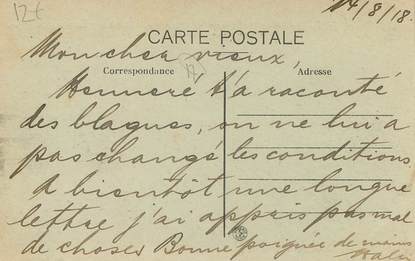 12€
14/8/18.
CARTE POSTALE
Mon cher vieux,
Correspondance
Adresse
t'a raconté
des blagues, on ne lui a
pas changé les conditions
à bientôt une longue
lettre j'ai appris pas mal
de choses Bonne poignée de mains